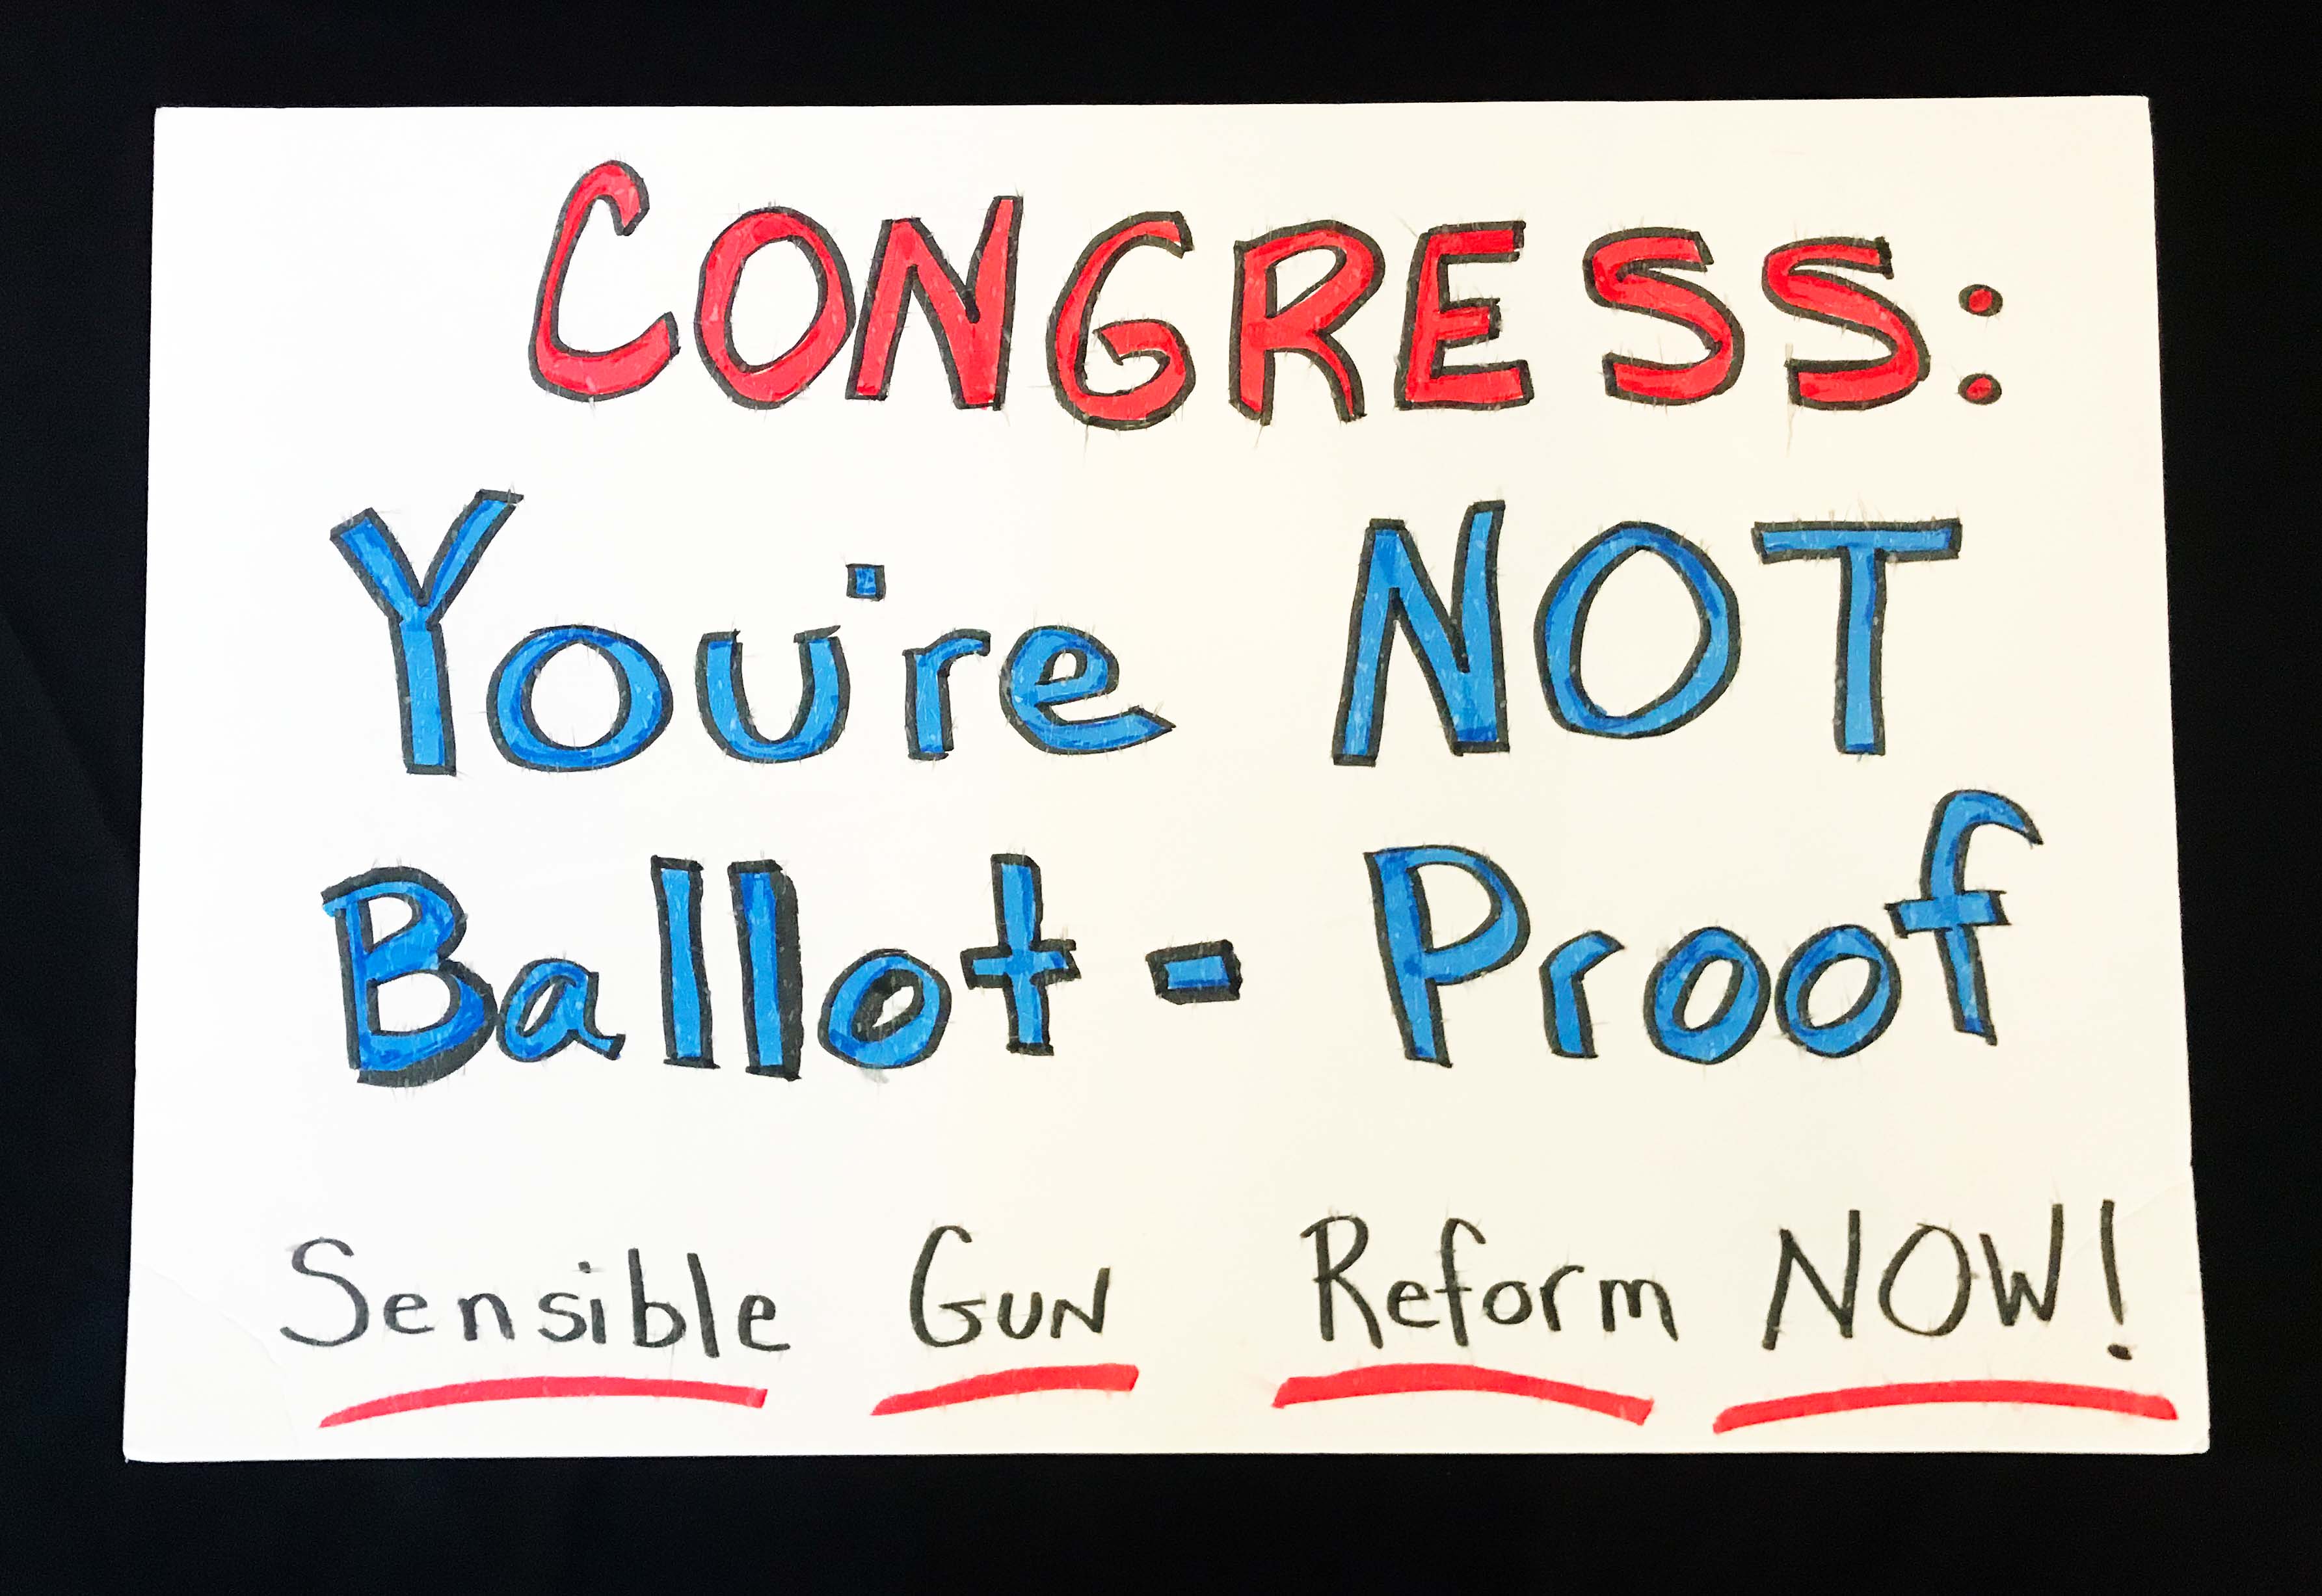 CONGRESS:
You're NOT
Ballot-Proof
Sensible GUN Reform NOW!